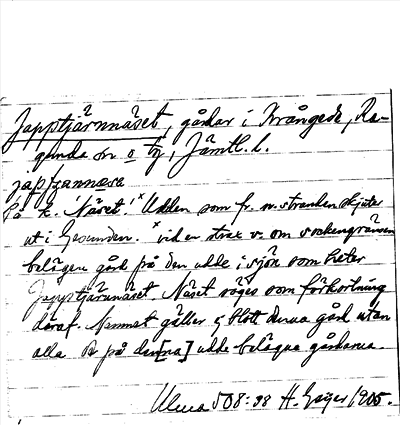 Japptjärnnäset, gårdar i Krångede, Ra-
gunda sn o tg, Jämtl. l.
japtjannæse
På k. "Näset". x Udden som fr. n. stranden skjuter
ut i Gesunden. x vid en strax v. om sockengränsen
belägen gård på den udde i sjön som heter
Japptjärnnäset. Näset säges som förkortning
däraf. Namnet gäller ej blott denna gård utan
alla de på den[na] udde belägna gårdarna.
Ulma 508:38 H. Geijer 1905.